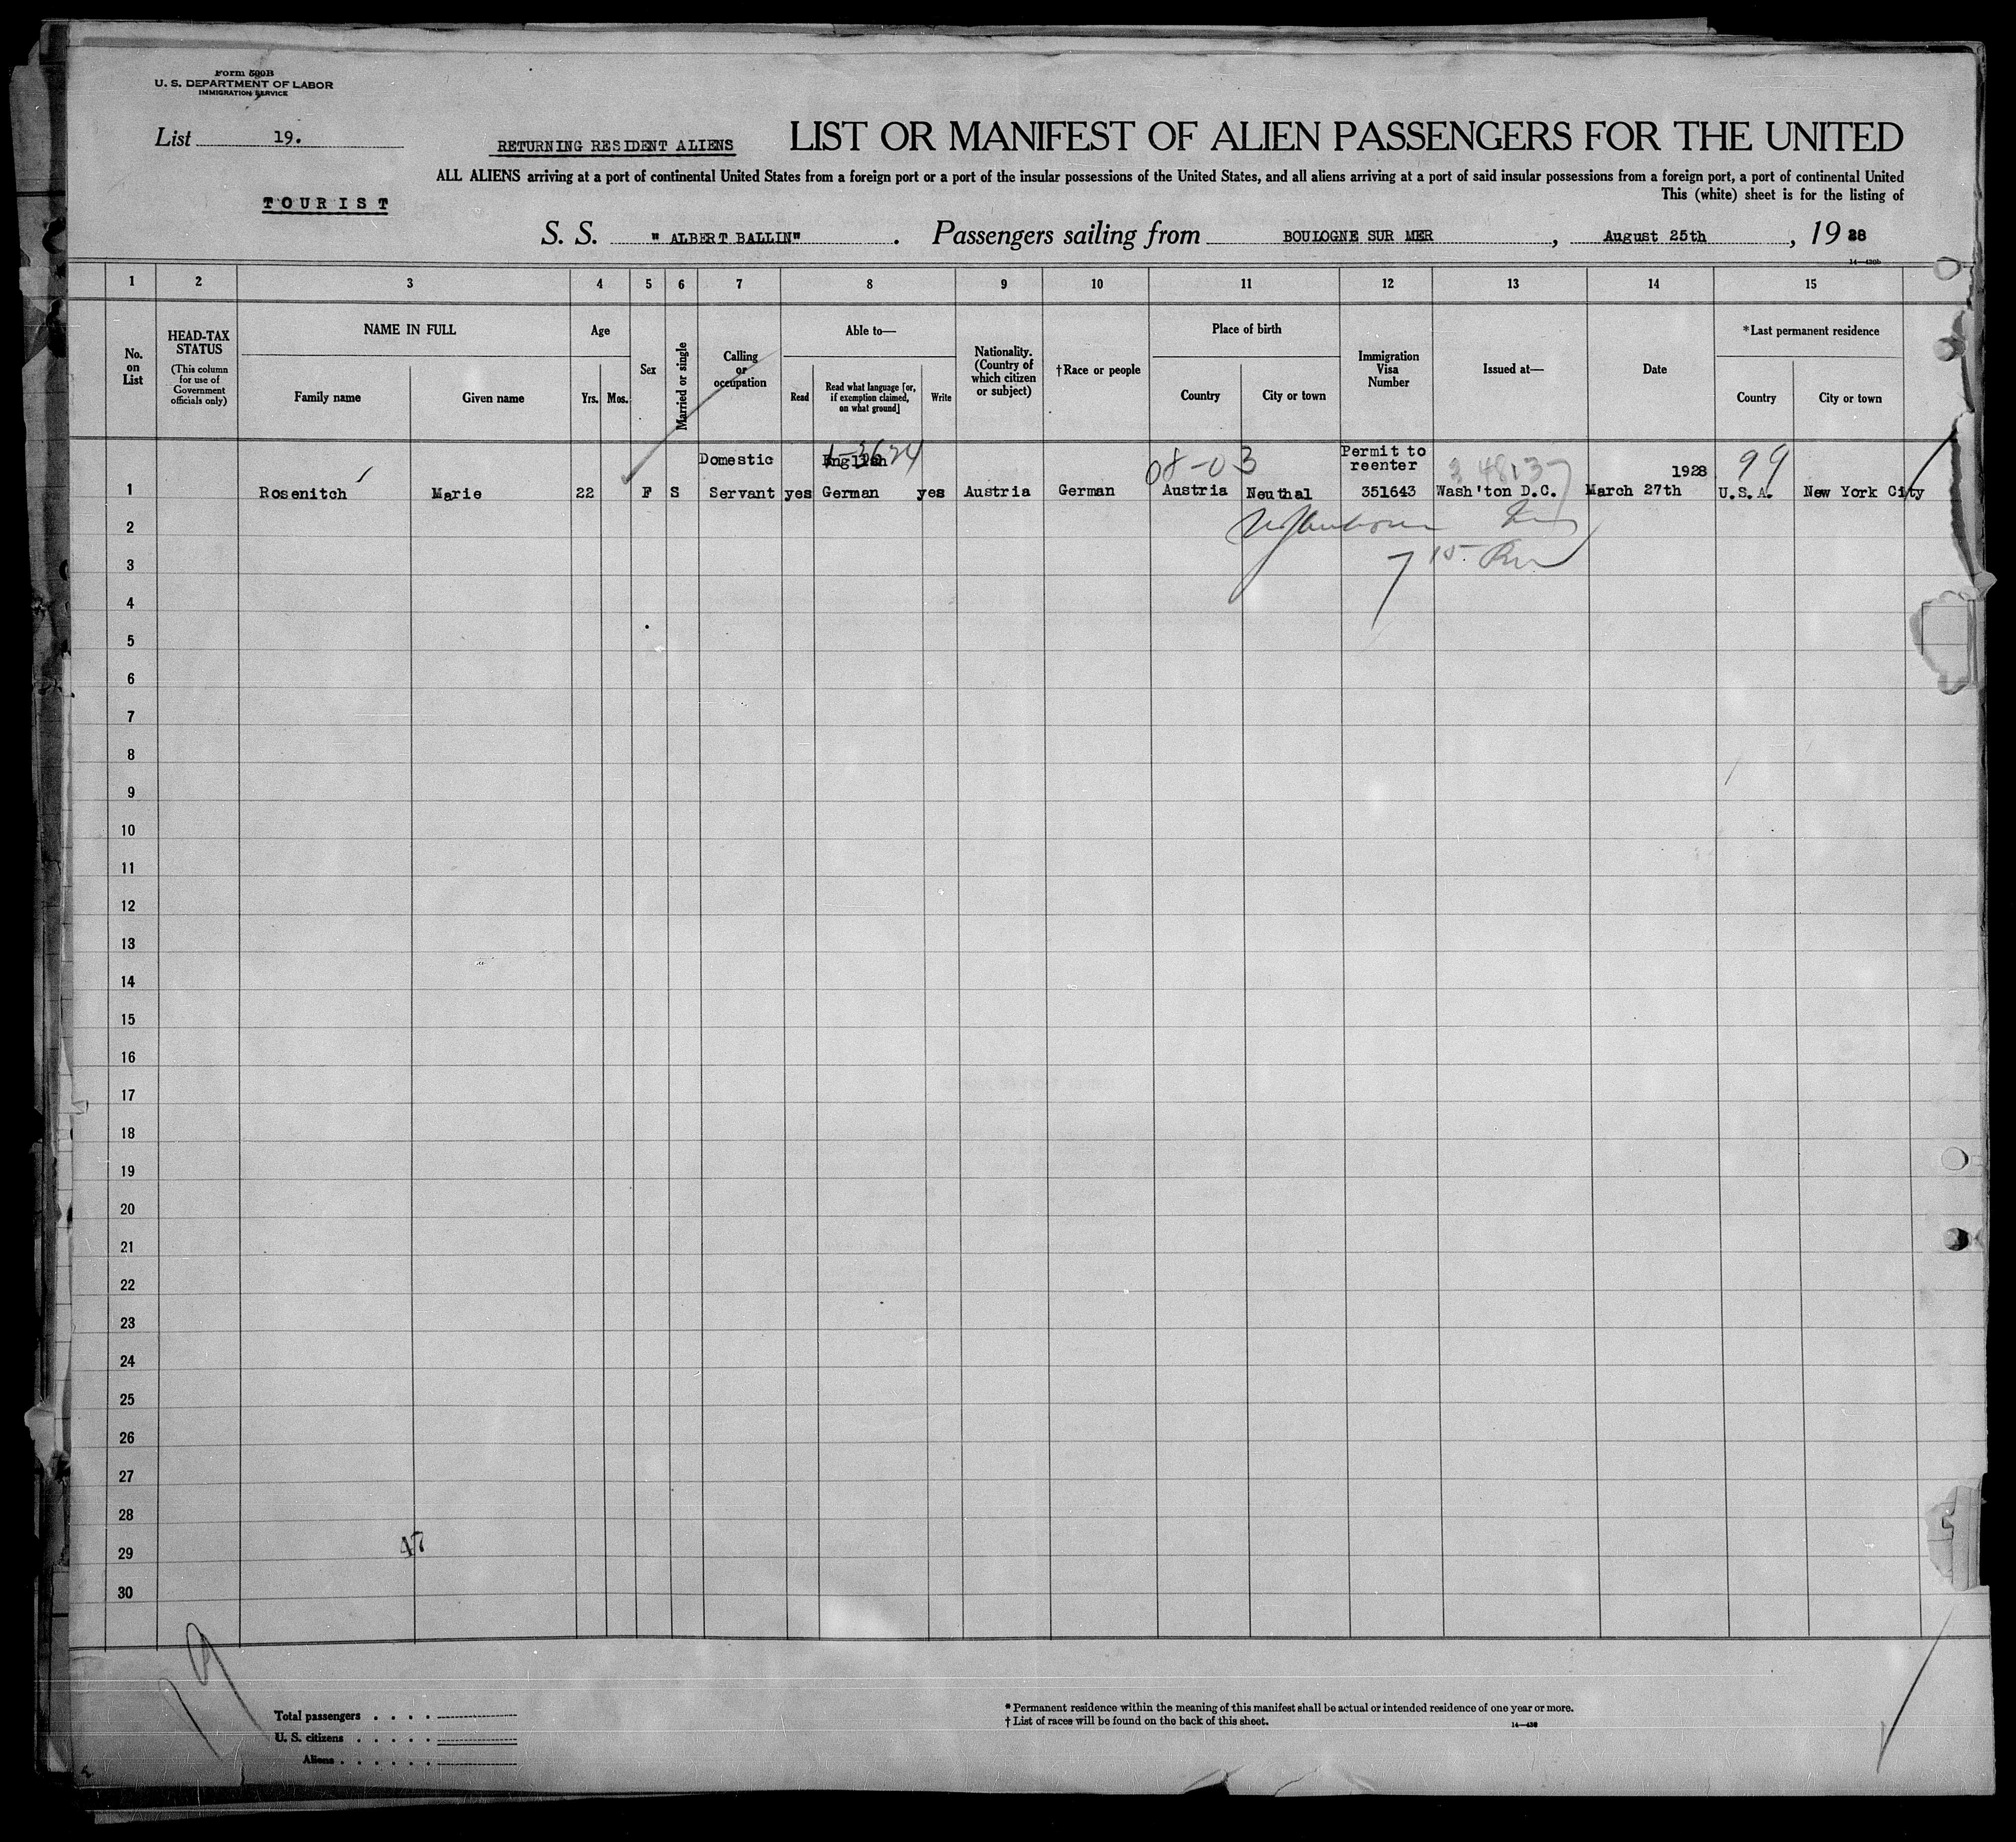 Form 500B
U. S. DEPARTMENT OF LABOR
IMMIGRATION SERVICE
List 19.
RETURNING RESIDENT ALIENS
LIST OR MANIFEST OF ALIEN PASSENGERS FOR THE UNITED
ALL ALIENS arriving at a port of continental United States from a foreign port or a port of the insular possessions of the United States, and all aliens arriving at a port of said insular possessions from a foreign port, a port of continental United
This (white) sheet is for the listing of
TOURIST
S. S. " ALBERT BALLIN" . Passengers sailing from BOULOGNE SUR MER , August 25th , 1928
1 2 3 4 5 6 7 8 9 10 11 12 13 14 15
No. on List
HEAD-TAX STATUS
(This column for use of Government officials only)
NAME IN FULL
Family name
Given name
Age
Yrs.
Mos.
Sex
Married or single
Calling or occupation
Able to—
Read
Read what language [or, if exemption claimed, on what ground]
Write
Nationality. (Country of which citizen or subject)
†Race or people
Place of birth
Country
City or town
Immigration Visa Number
Issued at—
Date
*Last permanent residence
Country
City or town
Domestic English 08-03 Permit to reenter 1928 99
1 Rosenitch Marie 22 F S Servant yes German yes Austria German Austria Neuthal 351643 Wash'ton D.C. March 27th U.S.A. New York City
2
3
4
5
6
7
8
9
10
11
12
13
14
15
16
17
18
19
20
21
22
23
24
25
26
27
28
29
30
47
19
Total passengers . . . .
U. S. citizens . . . . .
Aliens . . . . . .
* Permanent residence within the meaning of this manifest shall be actual or intended residence of one year or more.
† List of races will be found on the back of this sheet.